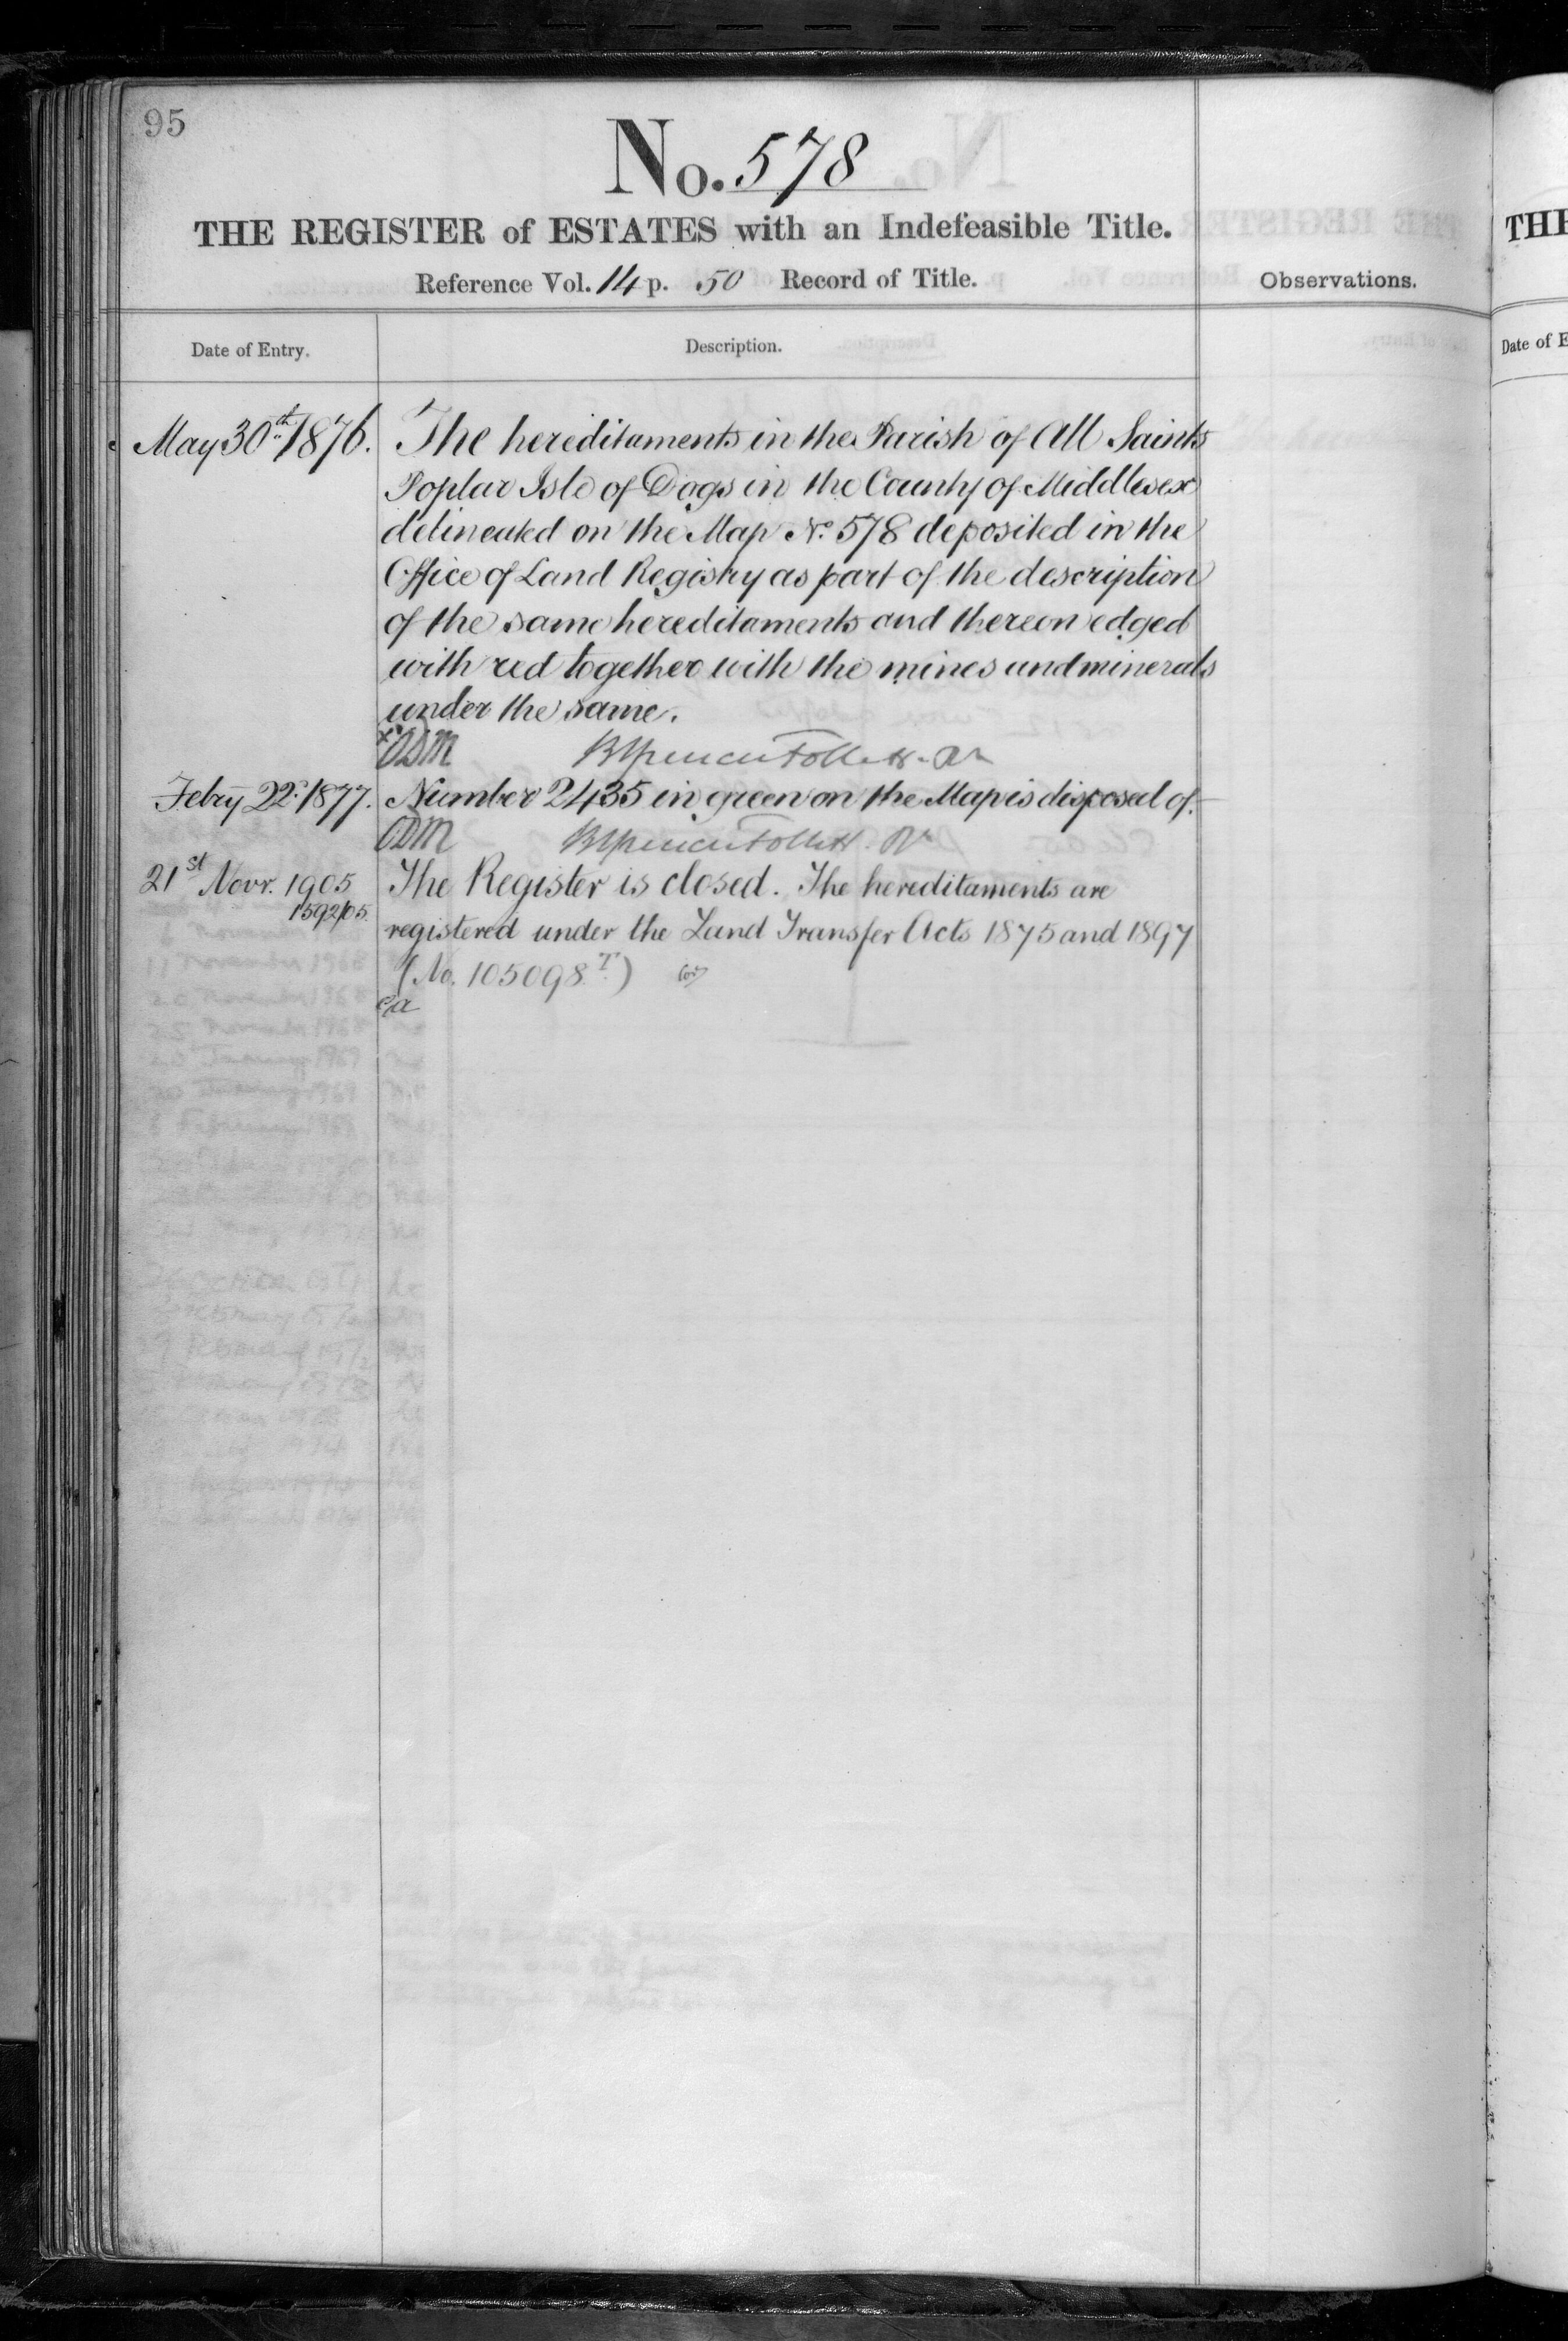 95
No. 578
THE REGISTER of ESTATES with an Indefeasible Title.
Reference Vol. 14 p. 50 Record of Title.
Observations.
Date of Entry.
Description.
May 30th 1876.
The hereditaments in the Parish of All Saints
Poplar Isle of Dogs in the County of Middlesex
delineated on the Map No. 578 deposited in the
Office of Land Registry as part of the description
of the same hereditaments and thereon edged
with red together with the mines and minerals
under the same.
ODM Brent Spencer Follett
Febry 22d 1877.
Number 2435 in green on the Map is disposed of.
ODM
21st Novr. 1905
1592/05
The Register is closed. The hereditaments are
registered under the Land Transfer Acts 1875 and 1897
(No. 105098 T.)
THE
Date of E